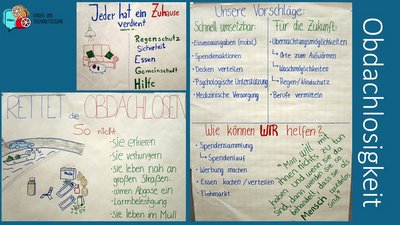 KINDER- UND
JUGENDBETEILIGUNG
Jeder hat ein Zuhause
verdient
Regenschutz
Sicherheit
Essen
Gemeinschaft
Hilfe
RETTET die OBDACHLOSEN
So nicht
• sie erfrieren
• sie verhungern
• sie leben nah an
großen Straßen:
• atmen Abgase ein
• Lärmbelästigung
• sie leben im Müll
Unsere Vorschläge:
Schnell umsetzbar:
• Essensausgaben (mobil)
• Spendenaktionen
• Decken verteilen
• Psychologische Unterstützung
• Medizinische Versorgung
Für die Zukunft:
• Übernachtungsmöglichkeiten
↳ Orte zum Aufwärmen
↳ Waschmöglichkeiten
↳ Regen/Windschutz
• Berufe vermitteln
Wie können WIR helfen?
• Spendensammlung
↳ Spendenlauf
• Werbung machen
• Essen kochen / verteilen
• Flohmarkt
"Man will mit
ihnen nichts zu tun
haben und wenn sie da
sind, dann werden sie so
behandelt, dass sie als
Mensch
sind."
Obdachlosigkeit